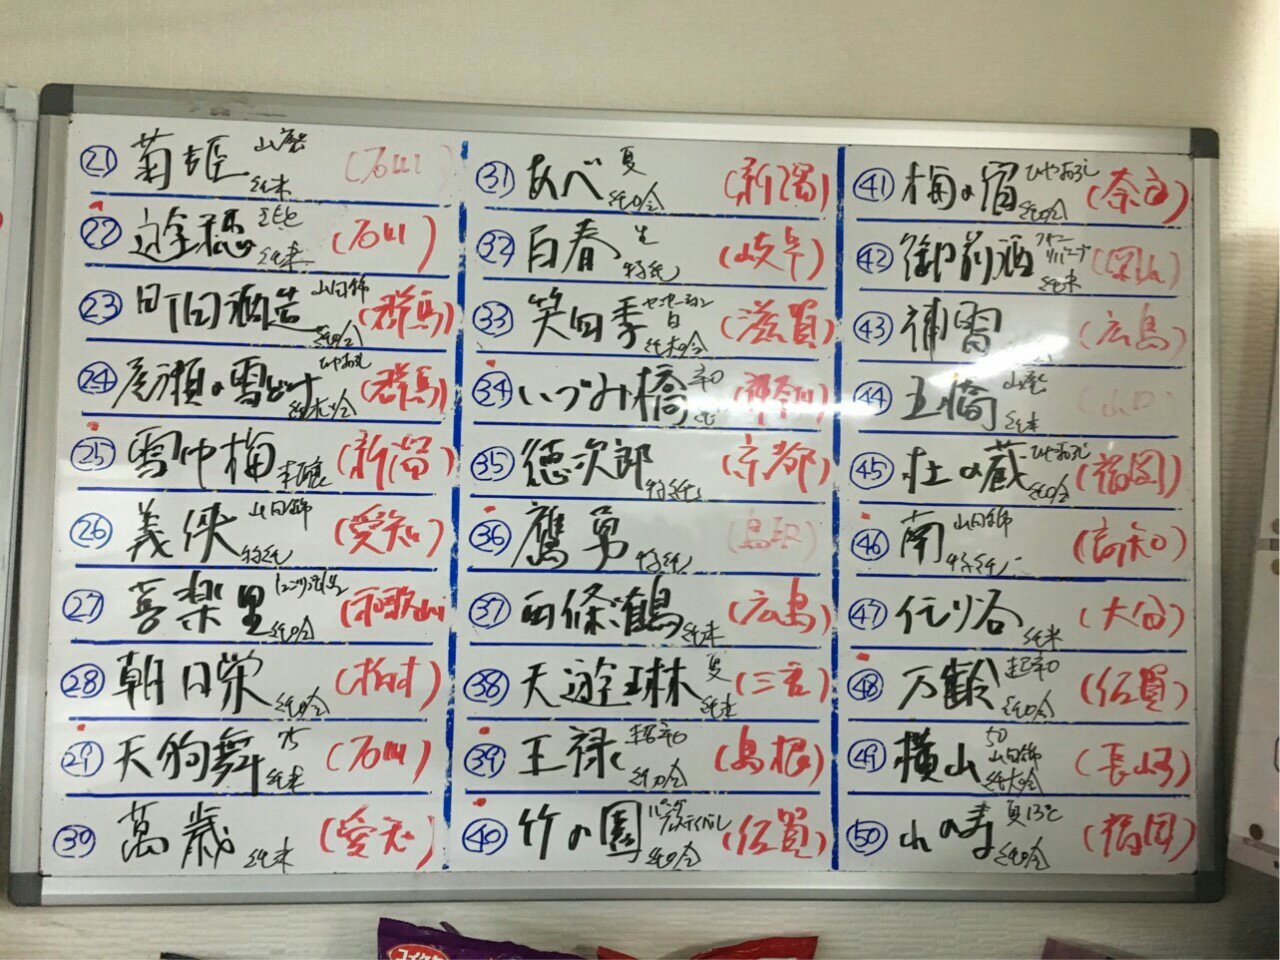 ㉑ 菊姫 山廃 純米 (石川)
㉒ 遊穂 純米 (石川)
㉓ 町田酒造 山田錦 純吟 (群馬)
㉔ 尾瀬の雪どけ ひやおろし 純大吟 (群馬)
㉕ 雪中梅 本醸 (新潟)
㉖ 義侠 山田錦 特純 (愛知)
㉗ 喜楽里 純吟 (和歌山)
㉘ 朝日栄 純吟 (栃木)
㉙ 天狗舞 75 純米 (石川)
㉚ 萬歳 純米 (愛知)
㉛ あべ 夏 純吟 (新潟)
㉜ 百春 生 特純 (岐阜)
㉝ 笑四季 センセーション 白 純米吟 (滋賀)
㉞ いづみ橋 辛口 (神奈川)
㉟ 徳次郎 特純 (京都)
㊱ 鷹勇 特純 (鳥取)
㊲ 西條鶴 純米 (広島)
㊳ 天遊琳 夏 純米 (三重)
㊴ 王禄 超辛口 純吟 (島根)
㊵ 竹の園 フェスティバル 純吟 (佐賀)
㊶ 梅の宿 ひやおろし 純吟 (奈良)
㊷ 御前酒 純米 (岡山)
㊸ 神雷 (広島)
㊹ 五橋 山廃 純米 (山口)
㊺ 杜の蔵 ひやおろし 純吟 (福岡)
㊻ 南 山田錦 特純 (高知)
㊼ 純米 (大分)
㊽ 万齢 超辛口 純吟 (佐賀)
㊾ 横山 50 山田錦 純大吟 (長崎)
㊿ 山の寿 夏13℃ 純吟 (福岡)